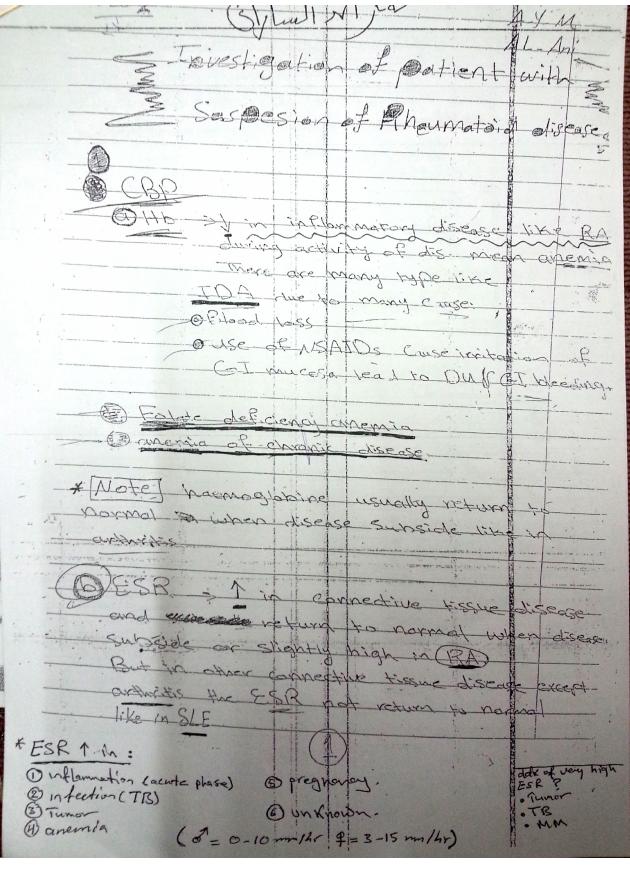 A Y M
AL-Ani
Investigation of patient with
Saspesion of Rheumatoid disease
① CBP
ⓐ Hb → ↓ in inflammatory disease like RA
during activity of dis. mean anemia
There are many type like
IDA due to many
Blood loss
use of NSAIDs Cause irritation of
GI mucosa lead to GI bleeding.
Folate deficiency anemia
anemia of chronic disease
* Note haemoglobine usually return to
normal when disease subside like in
arthritis
ⓑ ESR → ↑ in connective tissue disease
and return to normal when disease
subside or slightly high in RA
But in other connective tissue disease except
arthritis the ESR not return to normal
like in SLE
①
* ESR ↑ in :
① inflammation (acute phase)
② infection (TB)
③ Tumor
④ anemia
⑤ pregnancy.
⑥ unknown.
(♂ = 0-10 mm/hr ♀ = 3-15 mm/hr)
ddx of very high
ESR ?
• Tumor
• TB
• MM